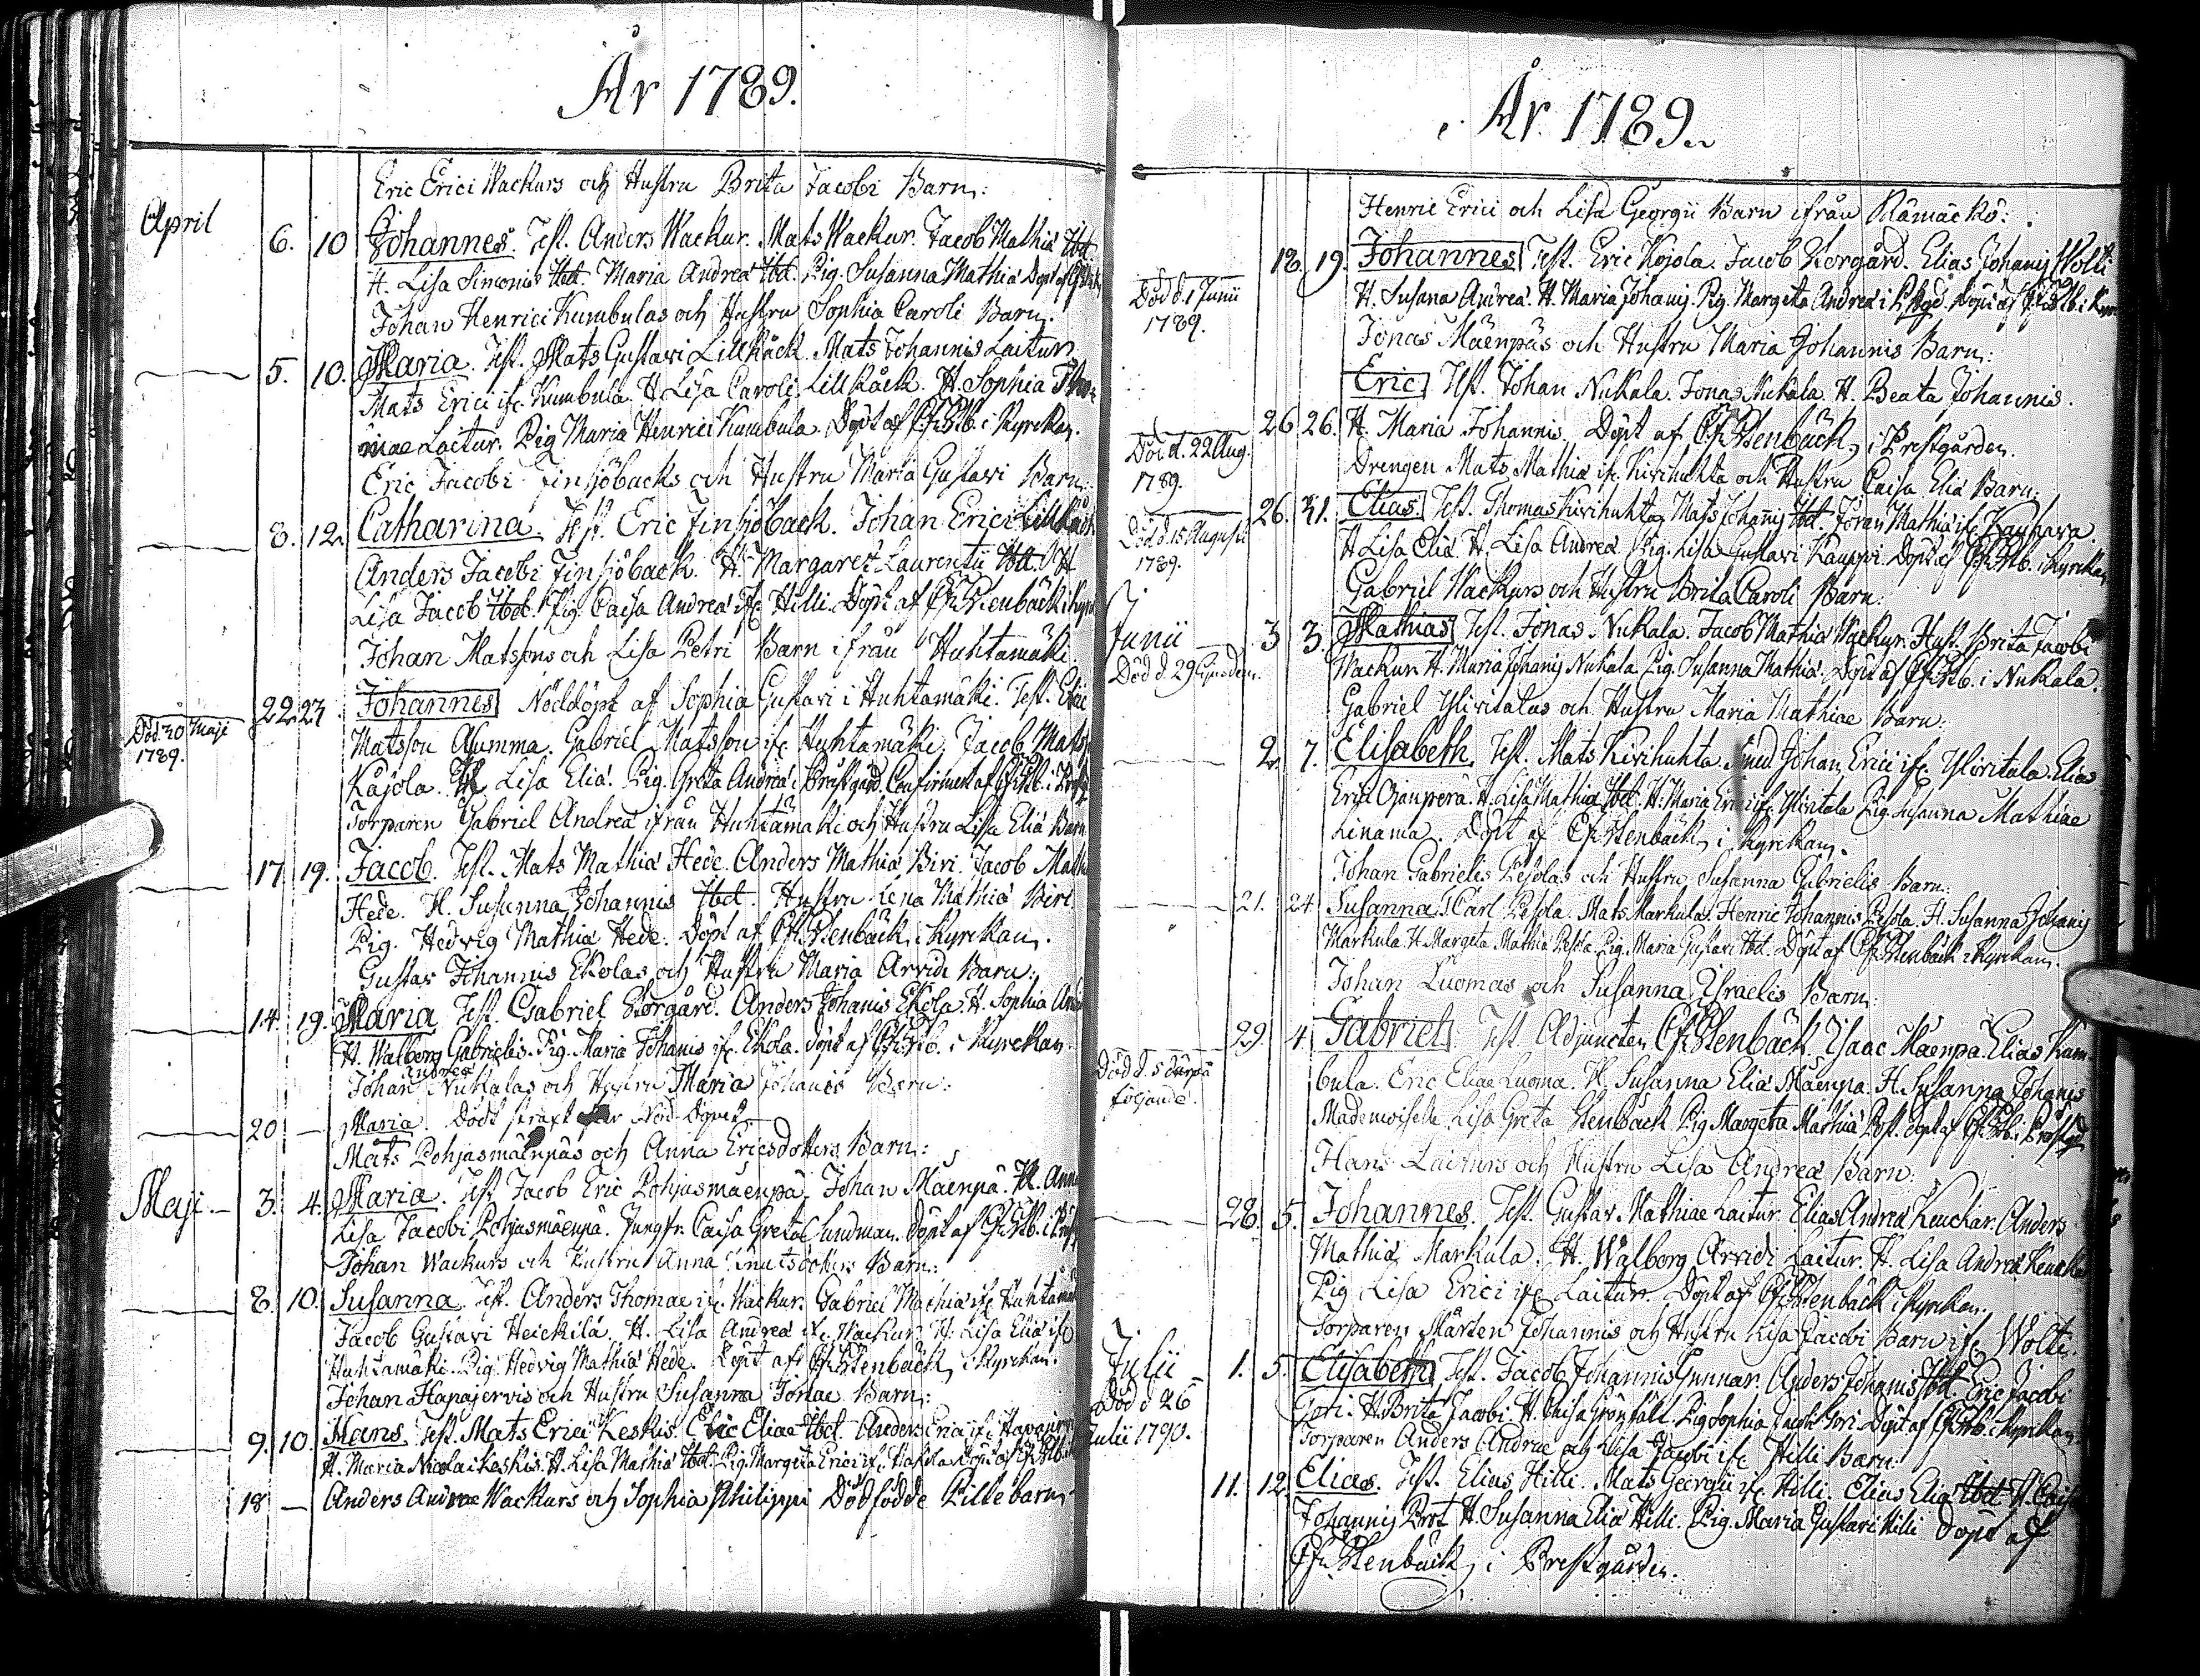 År 1789.
Eric Erici Wackurs och Hustru Brita Jacobi Barn:
April 6. 10 Johannes. Test. Anders Wackur. Mats Wackur. Jacob Mathiæ Ibd.
H. Lisa Simonis Ibd. Maria Andreæ Ibd. Pig. Susanna Mathiæ
Johan Henrici Kumbulas och Hustru Sophia Caroli Barn.
5. 10. Maria. Test. Mats Gustavi Lillkåck. Mats Johannis Laitur
Mats Erici ifr. Kumbula. H. Lisa Caroli Lillkåck. H. Sophia Tho-
mae Laitur. Pig. Maria Henrici Kumbula. Döpt af i Kyrckan.
Eric Jacobi Finsjöbacks och Hustru Maria Gustavi Barn:
8. 12. Catharina. Test. Eric Finsjöback. Johan Erici Lillkåck
Anders Jacobi Finsjöback. H. Margaret Laurentii Ibd. H.
Lisa Jacob Ibd. Pig. Caisa Andreæ ifr. Hilli. Döpt af Stenbäck i Kyrk
Johan Matssons och Lisa Petri Barn ifrån Huhtamäki
22. 24. Johannes Nöddöpt af Sophia Gustavi i Huhtamäki. Test. Eric
Död 30 Maji
1789.
Matsson Alumma. Gabriel Matsson ifr. Huhtamäki, Jacob Mats
Kajola. H. Lisa Eliæ. Pig. Greta Andreæ i Prestgård. Confirmerat af
Torparen Gabriel Andreæ ifrån Huhtamäki och Hustru Lisa Eliæ Barn
17. 19. Jacob. Test. Mats Mathiæ Hede. Anders Mathiæ Biri. Jacob Math
Hede. H. Susanna Johannis Ibd. Hustru Lena Mathiæ Biri.
Pig. Hedvig Mathiæ Hede. Döpt af Stenbäck i Kyrckan.
Gustav Johannis Ekolas och Hustru Maria Arvidi Barn:
14. 19. Maria Test. Gabriel Storgård. Anders Johannis Ekola. H. Sophia
H. Walborg Gabrielis. Pig. Maria Johanis ifr. Ekola. Döpt af i Kyrckan.
Johan Andreæ Nukalas och Hustru Maria Johanis Barn:
20 — Maria. Dödt straxt Nöd Döpet
Mats Pohjasmäenpäs och Anna Ericsdotters Barn:
Maji 3. 4. Maria. Test. Jacob Eric Pohjasmäenpä. Johan Mäenpä. H. Anna
Lisa Jacobi Pohjasmäenpä. Jungfr. Caisa Greta Sundman. Döpt af
Johan Wackurs och Hustru Anna Barn:
8. 10. Susanna. Test. Anders Thomae ifr. Wackur. Gabriel Mathiæ ifr. Huhtamäki
Jacob Gustavi Heickilä. H. Lisa Andreæ ifr. Wackur. H. Lisa Eliæ ifr.
Huhtamäki. Pig. Hedvig Mathiæ Hede. Döpt af Stenbäck i Kyrckan.
Johan Hapajervis och Hustru Susanna Jonae Barn:
9. 10. Hans. Test. Mats Erici Keskis. Eric Eliae Ibd. Anders Erici ifr. Hapajervi
H. Maria Nicolai Keskis. H. Lisa Mathiæ Ibd. Pig. Margeta Erici ifr.
18 — Anders Andreae Wackurs och Sophia Philippi Dödfödde Pillebarn.
År 1789.
Henric Erici och Lisa Georgii Barn ifrån Rämäckö:
18. 19. Johannes Test. Eric Kojola. Jacob Storgård. Elias Johanis Wolti
Död d. 1 Junii
1789.
H. Susana Andreæ. H. Maria Johanis. Pig. Margeta Andreæ i
Jonas Mäenpäs och Hustru Maria Johannis Barn:
Eric Test. Johan Nukala. Jonas Nukala. H. Beata Johannis.
26 26. H. Maria Johannis. Döpt af Stenbäck, i Prestgården.
Död d. 22 Aug.
1789.
Drengen Mats Mathiæ ifr. Kivihuhta och Hustru Caisa Eliæ Barn:
26. 31. Elias Test. Thomas Kivihuhta, Mats Johanis Ibd. Jöran Mathiæ ifr. Kauhava.
Död d. 15 Augusti
1789.
H. Lisa Eliæ. H. Lisa Andreæ. Pig. Lisa Gustavi Kauppi. Döpt af i Kyrckan
Gabriel Wackurs och Hustru Brita Caroli Barn:
Junii 3 3. Mathias Test. Jonas Nukala. Jacob Mathiæ Wackur. Hust. Brita Jacobi
Död d. 29
Wackur. H. Maria Johanis Nukala. Pig. Susanna Mathiæ. Döpt af i Nukala.
Gabriel Yliritalas och Hustru Maria Mathiae Barn:
2. 7. Elisabeth. Test. Mats Kivihuhta. Smed Johan Erici ifr. Yliritala. Elias
Erici Ojanperä. H. Lisa Mathiæ Ibd. H. Maria Erici ifr. Yliritala. Pig. Susanna Mathiae
Linama. Döpt af Stenbäck, i Kyrckan.
Johan Gabrielis Pesolas och Hustru Susanna Gabrielis Barn:
21. 24. Susanna. T. Carl Pesola. Mats Markula. Henric Johannis Pesola. H. Susanna Johanis
Markula. H. Margeta Mathiæ Pesola. Pig. Maria Gustavi Ibd. Döpt af Stenbäck i Kyrckan.
Johan Luomas och Susanna Israelis Barn:
29. 4. Gabriel Test. Adjuncten Stenbäck. Isaac Mäenpä. Elias Kum-
Död d. 5
följande.
bula. Eric Eliae Luoma. H. Susanna Eliæ Mäenpä. H. Susanna Johanis
Mademoiselle Lisa Greta Stenbäck. Pig. Margeta Mathiæ
Hans Laiturs och Hustru Lisa Andreæ Barn:
28. 5. Johannes. Test. Gustav Mathiae Laitur. Elias Andreæ Keuckar. Anders
Mathiæ Markula. H. Walborg Arvidi Laitur. H. Lisa Andreæ
Pig. Lisa Erici ifr. Laitur. Döpt af Stenbäck i Kyrckan.
Torparen Mårten Johannis och Hustru Lisa Jacobi Barn ifr. Wolti.
Julii 1. 5. Elisabeth. Test. Jacob Johannis Gunnar. Anders Johanis Ibd. Eric Jacobi
Död d 26
Julii 1790.
Gori. H. Brita Jacobi. H. Caisa Grönfält. Pig. Sophia Jacobi Gori. Döpt af i Kyrckan.
Torparen Anders Andrae och Lisa Jacobi ifr. Hilli Barn:
11. 12. Elias. Test. Elias Hilli. Mats Georgii ifr. Hilli. Elias Eliæ Ibd. H. Caisa
Johannis Prot. H. Susanna Eliæ Hilli. Pig. Maria Gustavi Hilli Döpt af
Stenbäck, i Prestgården.